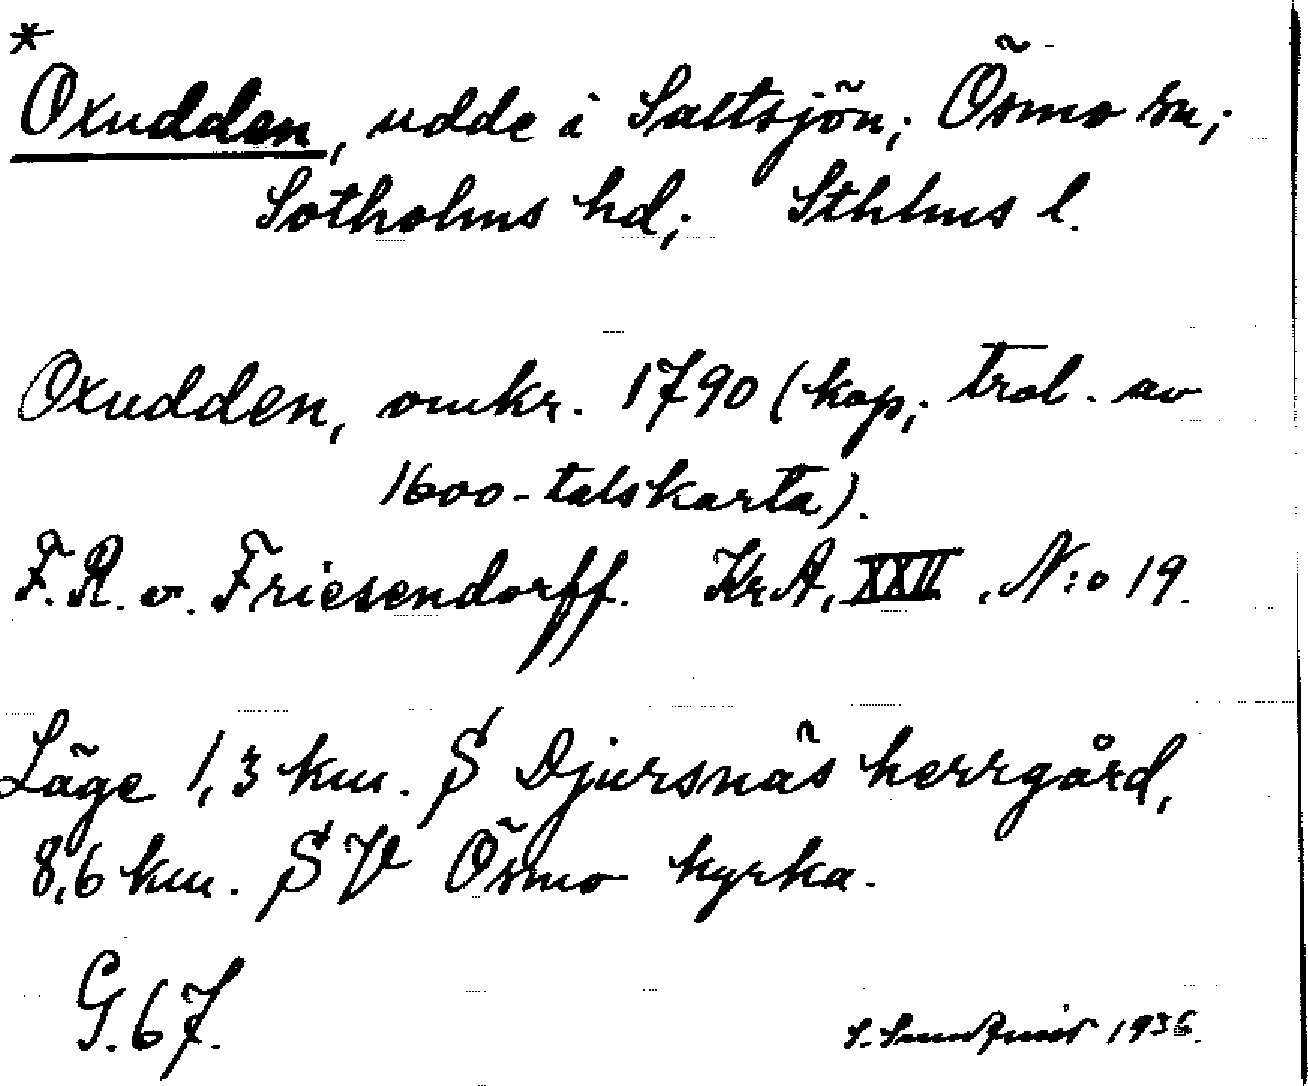 *
Oxudden, udde i Saltsjön; Ösmo sn;
Sotholms hd; Sthlms l.
Oxudden, omkr. 1790 (kop; trol. av
1600-talskarta).
F.R. v. Friesendorff. KrA, XXII, N:o 19.
Läge 1,3 km. S Djursnäs herrgård,
8,6 km. SV Ösmo kyrka.
G. 67.
S. 1936.